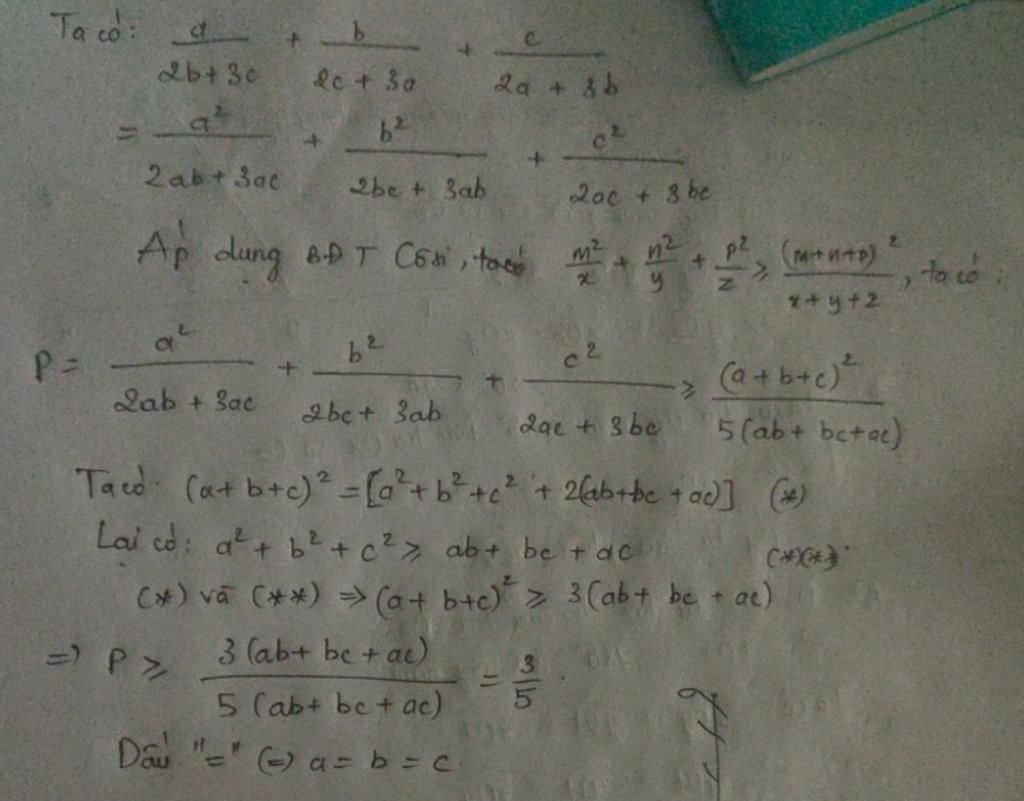 Ta có: a/(2b+3c) + b/(2c+3a) + c/(2a+3b)
= a²/(2ab+3ac) + b²/(2bc+3ab) + c²/(2ac+3bc)
Áp dụng BĐT Côsi, ta có m²/x + n²/y + p²/z ≥ (m+n+p)²/(x+y+z), ta có:
P = a²/(2ab+3ac) + b²/(2bc+3ab) + c²/(2ac+3bc) ≥ (a+b+c)²/5(ab+bc+ac)
Ta có: (a+b+c)² = [a²+b²+c² + 2(ab+bc+ac)] (*)
Lại có: a²+b²+c² ≥ ab+bc+ac (*)(*)
(*) và (**) ⇒ (a+b+c)² ≥ 3(ab+bc+ac)
⇒ P ≥ 3(ab+bc+ac)/5(ab+bc+ac) = 3/5.
Dấu "=" (=) a = b = c